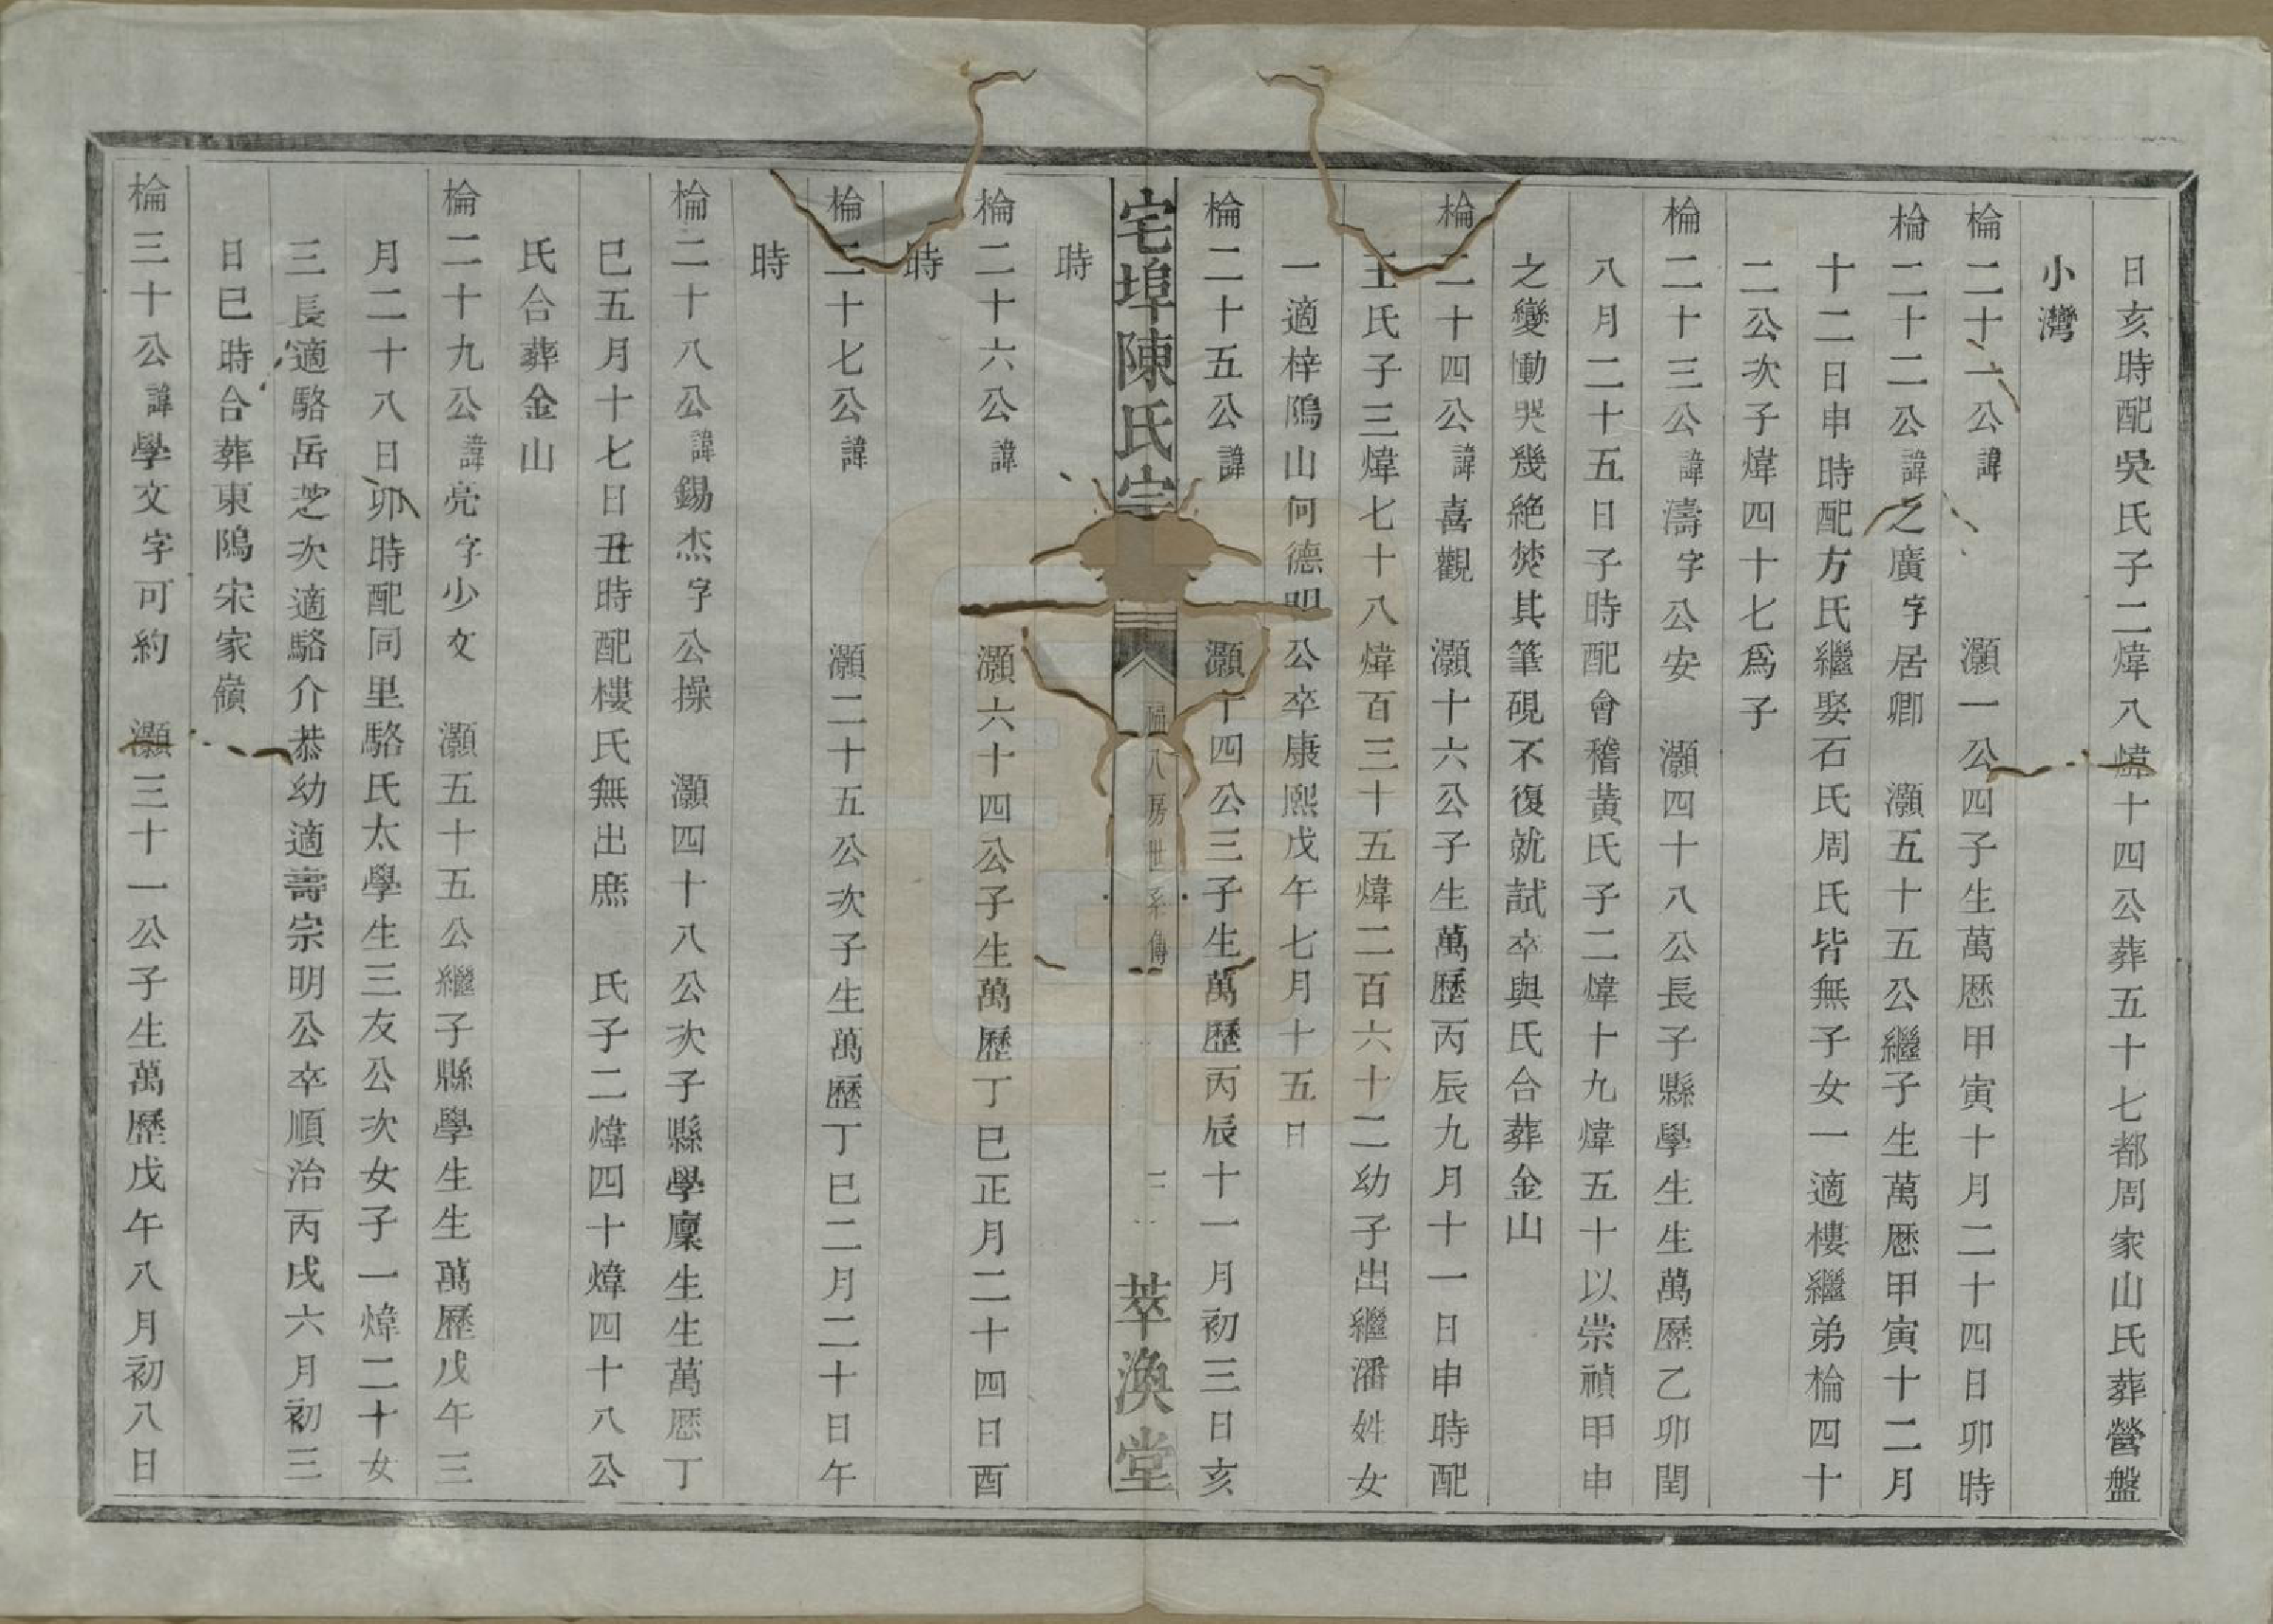 日亥時配吳氏子二煒八煒十四公葬五十七都周家山氏葬營盤
小灣
棆二十一公諱　灝一公四子生萬歷甲寅十月二十四日卯時
棆二十二公諱之廣字居卿　灝五十五公繼子生萬歷甲寅十二月
十二日申時配方氏繼娶石氏周氏皆無子女一適樓繼弟棆四十
二公次子煒四十七爲子
棆二十三公諱濤字公安　灝四十八公長子縣學生生萬歷乙卯閏
八月二十五日子時配會稽黃氏子二煒十九煒五十以崇禎甲申
之變慟哭幾絕焚其筆硯不復就試卒與氏合葬金山
棆二十四公諱喜觀　灝十六公子生萬歷丙辰九月十一日申時配
王氏子三煒七十八煒百三十五煒二百六十二幼子出繼潘姓女
一適梓隖山何德明公卒康熙戊午七月十五日
棆二十五公諱　灝十四公三子生萬歷丙辰十一月初三日亥
宅埠陳氏宗　八房世系傳　萃渙堂
時
棆二十六公諱　灝六十四公子生萬歷丁巳正月二十四日酉
時
棆二十七公諱　灝二十五公次子生萬歷丁巳二月二十日午
時
棆二十八公諱錫杰字公操　灝四十八公次子縣學廩生生萬歷丁
巳五月十七日丑時配樓氏無出庶　氏子二煒四十煒四十八公
氏合葬金山
棆二十九公諱亮字少文　灝五十五公繼子縣學生生萬歷戊午三
月二十八日卯時配同里駱氏太學生三友公次女子一煒二十女
三長適駱岳芝次適駱介恭幼適壽宗明公卒順治丙戌六月初三
日巳時合葬東隖宋家嶺
棆三十公諱學文字可約　灝三十一公子生萬歷戊午八月初八日